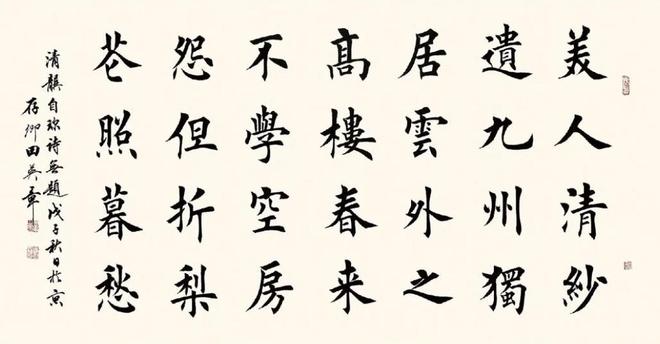 美人清紗
遺九州獨
居雲外之
髙樓春来
不學空房
怨但折梨
花照暮愁
清龔自珍詩無題戊子秋日於京
存卿田英章